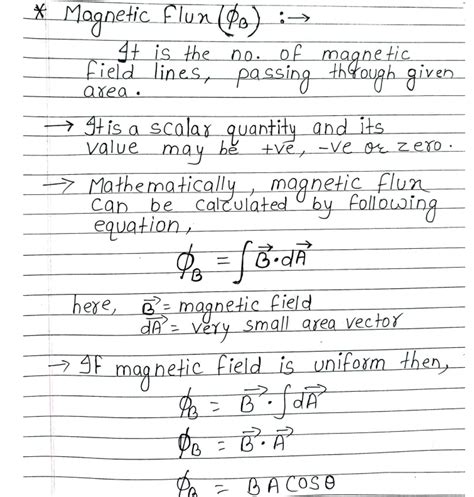 * Magnetic Flux (ϕB) :→
It is the no. of magnetic
field lines, passing through given
area.
→ It is a scalar quantity and its
value may be +ve, -ve or zero.
→ Mathematically, magnetic flux
can be calculated by following
equation,
ϕB = ∫B⃗·dA⃗
here, B⃗ = magnetic field
dA⃗ = very small area vector
→ If magnetic field is uniform then,
ϕB = B⃗·∫dA⃗
ϕB = B⃗·A⃗
ϕB = BA COSθ